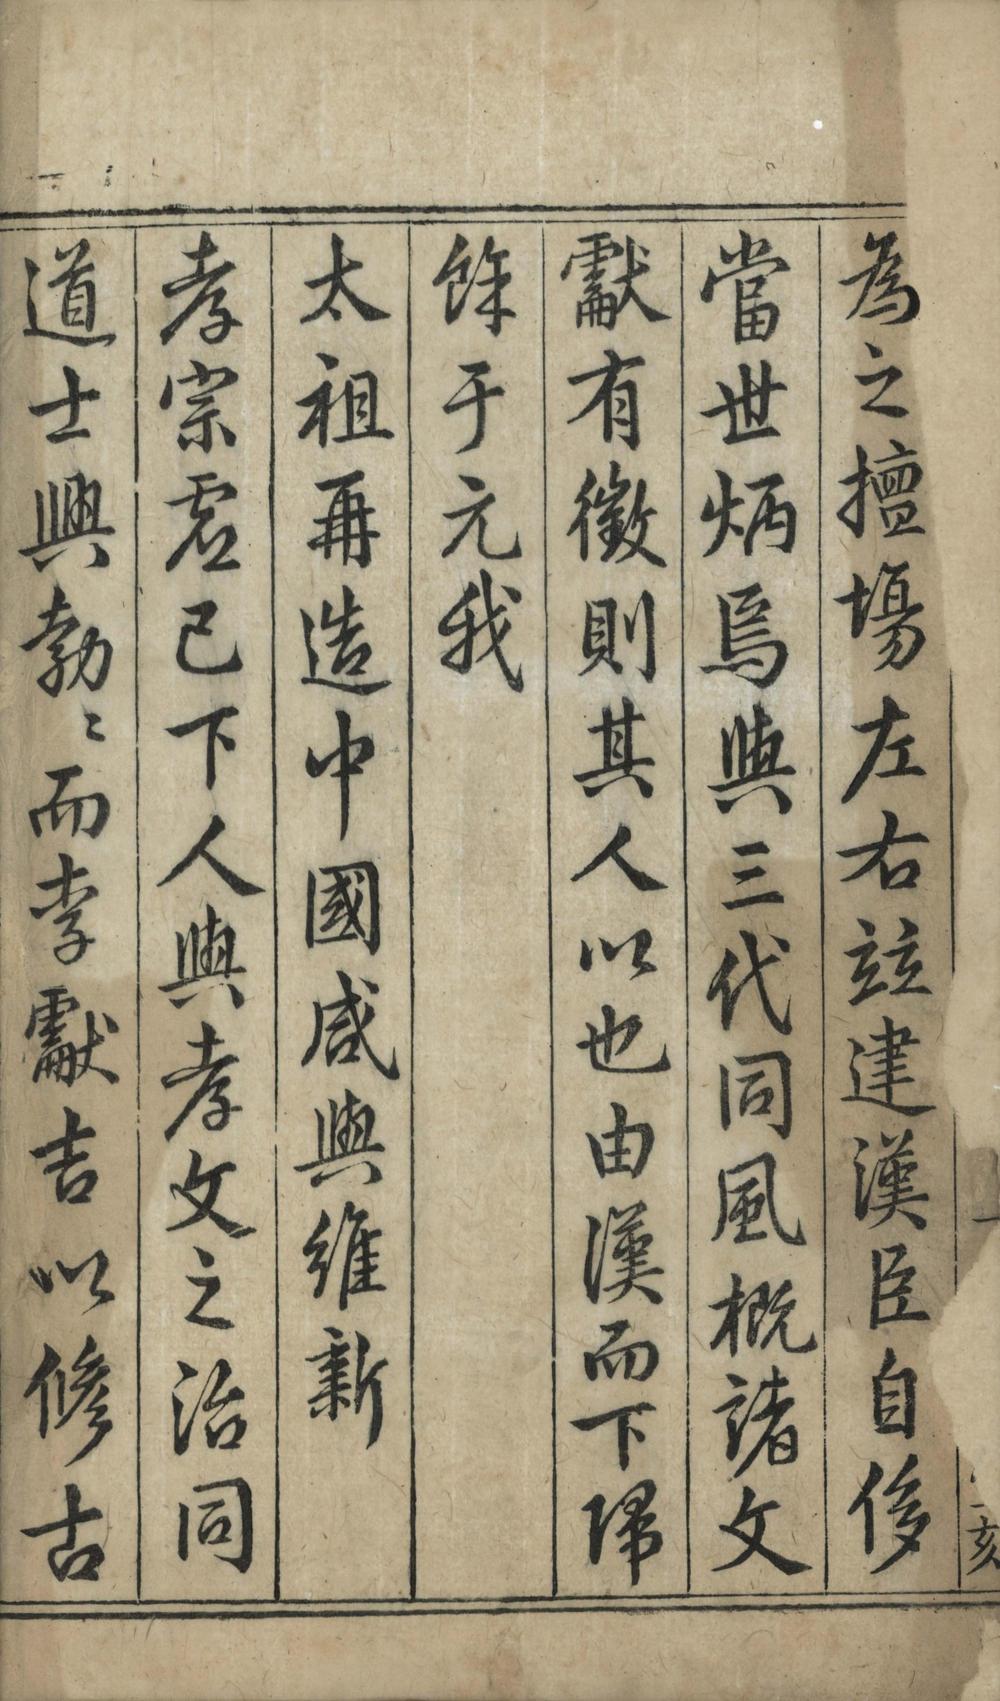 為之擅場左右玆建漢臣自侈
當世炳焉與三代同風概諸文
獻有徵則其人以也由漢而下歸
餘于元我
太祖再造中國咸與維新
孝宗虛己下人與孝文之治同
道士興勃〻而李獻吉以修古